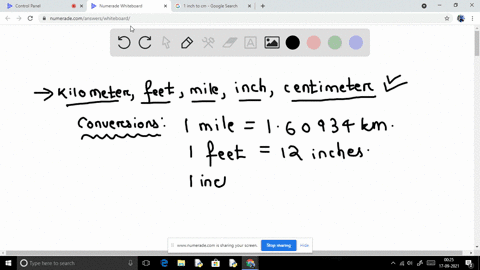 Control Panel
Numerade Whiteboard
1 inch to cm - Google Search
numerade.com/answers/whiteboard/
→ Kilometer, feet, mile, inch, centimeter ✓
Conversions: 1 mile = 1.60934 km.
1 feet = 12 inches.
1 inc
www.numerade.com is sharing your screen.
Stop sharing
Hide
Type here to search
00:25
17-09-2021